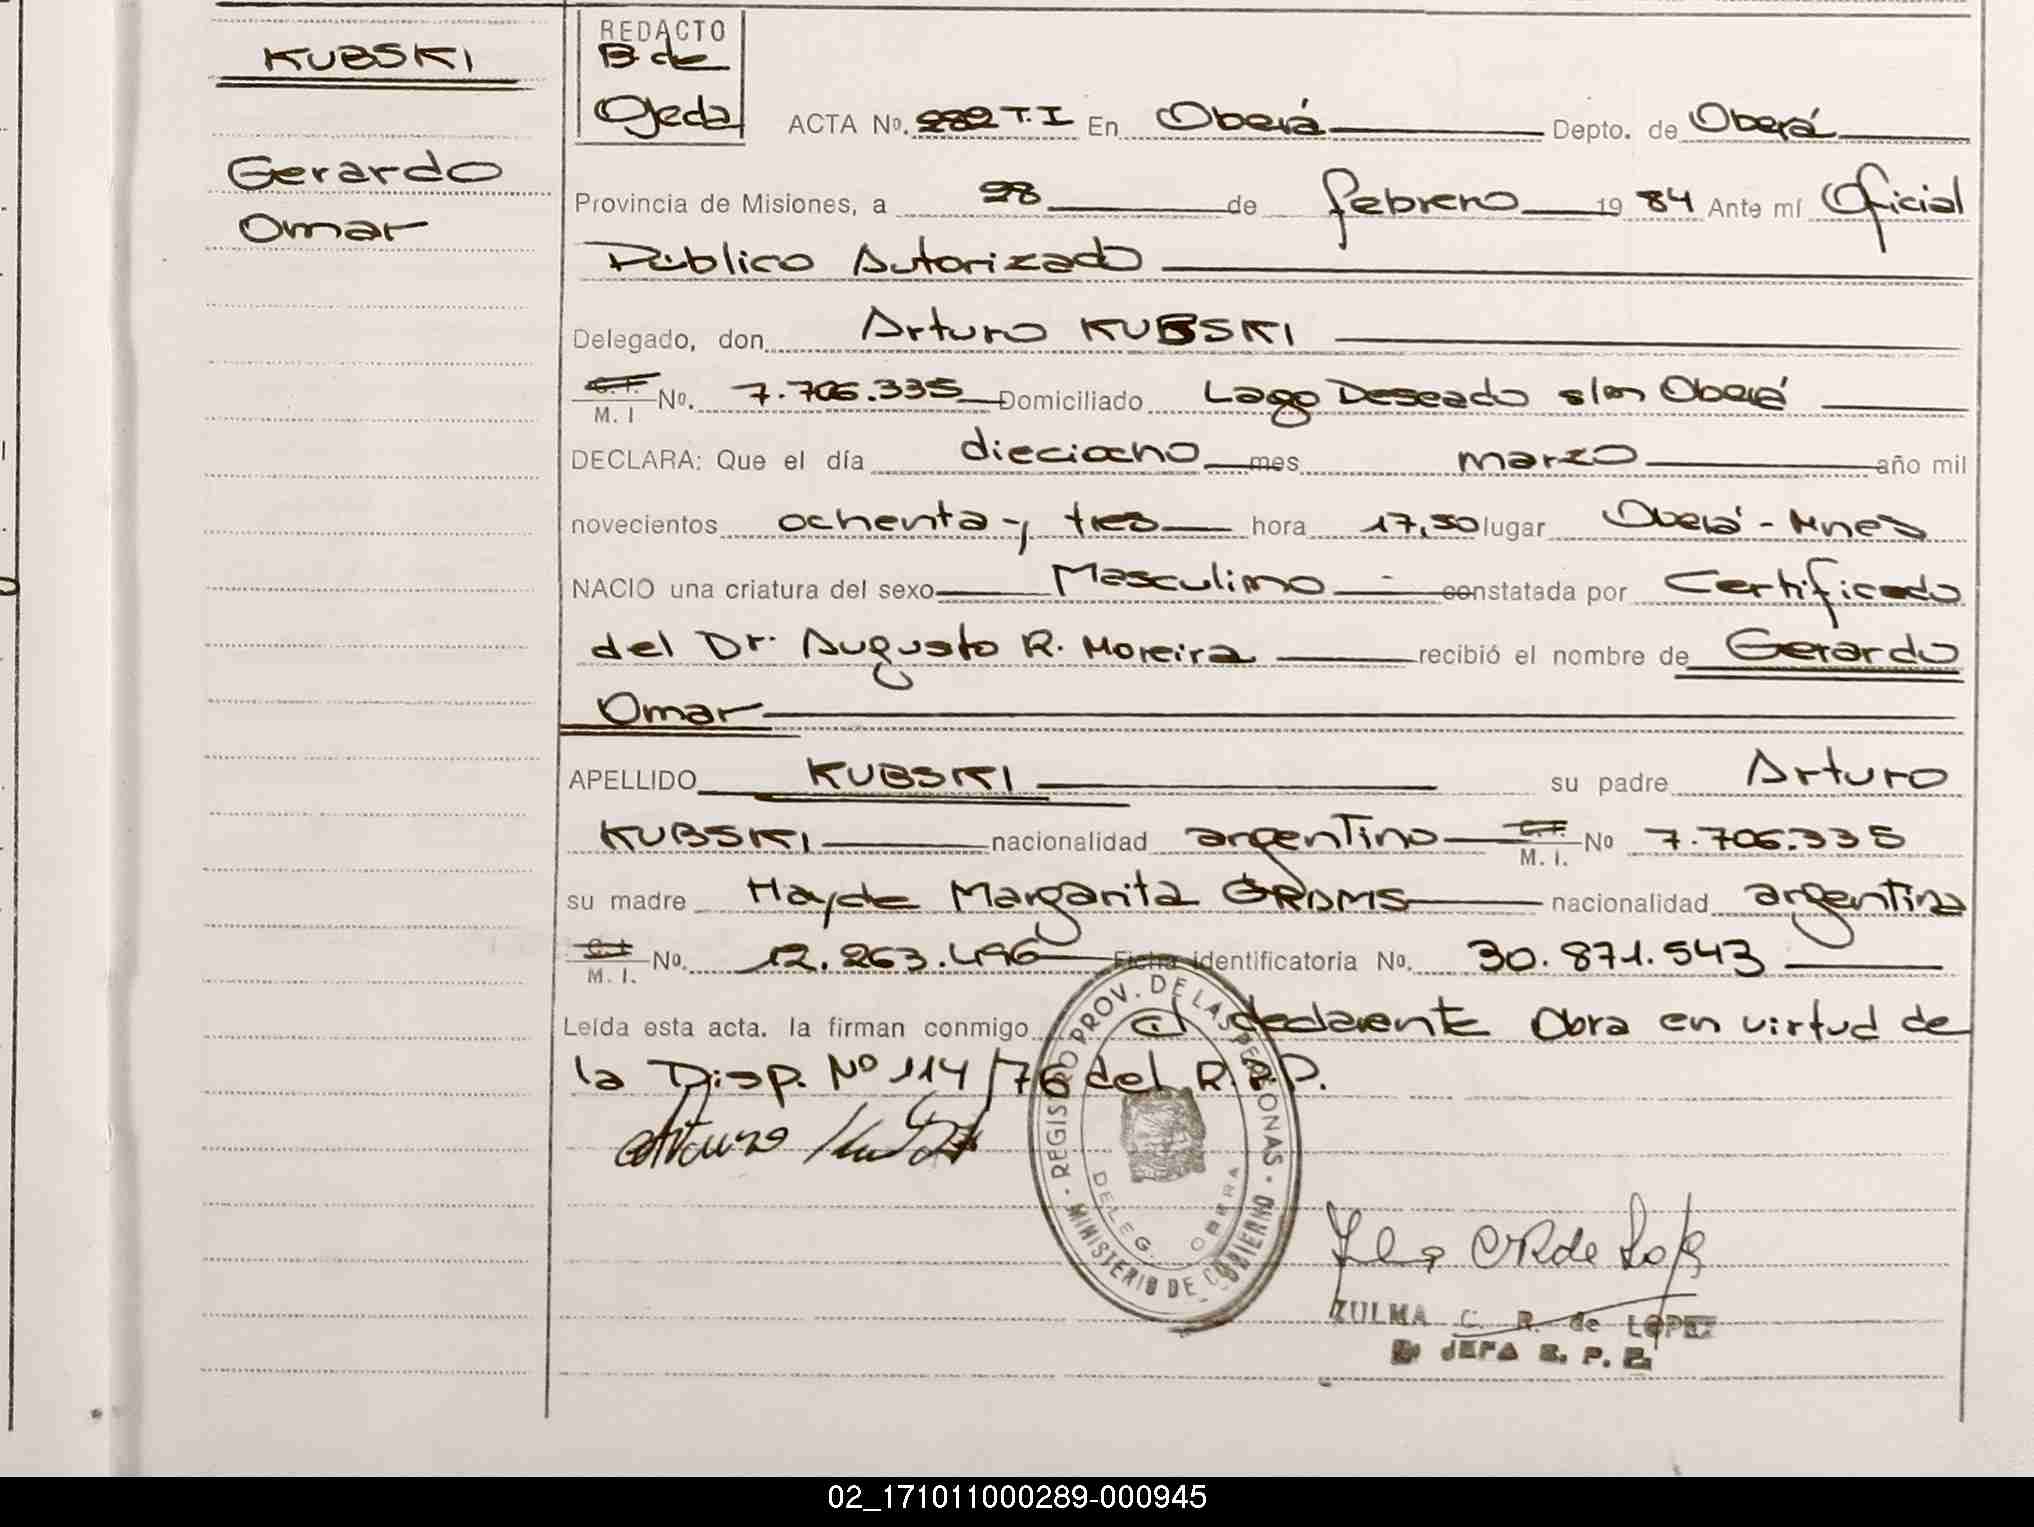 KUBSKI
Gerardo
Omar
REDACTO
B. de
Ojeda
ACTA No. 282 T.I En Oberá Depto. de Oberá
Provincia de Misiones, a 28 de febrero 19 84 Ante mí Oficial
Público Autorizado
Delegado, don Arturo KUBSKI
C. I. / M. I No. 7.706.335 Domiciliado Lago Deseado s/n Oberá
DECLARA: Que el día dieciocho mes marzo año mil
novecientos ochenta y tres hora 17,50 lugar Oberá - Mnes
NACIO una criatura del sexo Masculino constatada por Certificado
del Dr. Augusto R. Moreira recibió el nombre de Gerardo
Omar
APELLIDO KUBSKI su padre Arturo
KUBSKI nacionalidad argentino C. I. / M. I. No 7.706.335
su madre Hayde Margarita GRAMS nacionalidad argentina
C. I / M. I. No. 12.263.496 Ficha identificatoria No. 30.871.543
Leída esta acta. la firman conmigo el declarante Obra en virtud de
la Disp. Nº 114/76 del R.P.P.
REGISTRO PROV. DE LAS PERSONAS
MINISTERIO DE GOBIERNO
DELEG. OBERA
ZULMA C. R. de LOPEZ
JEFA
02_171011000289-000945